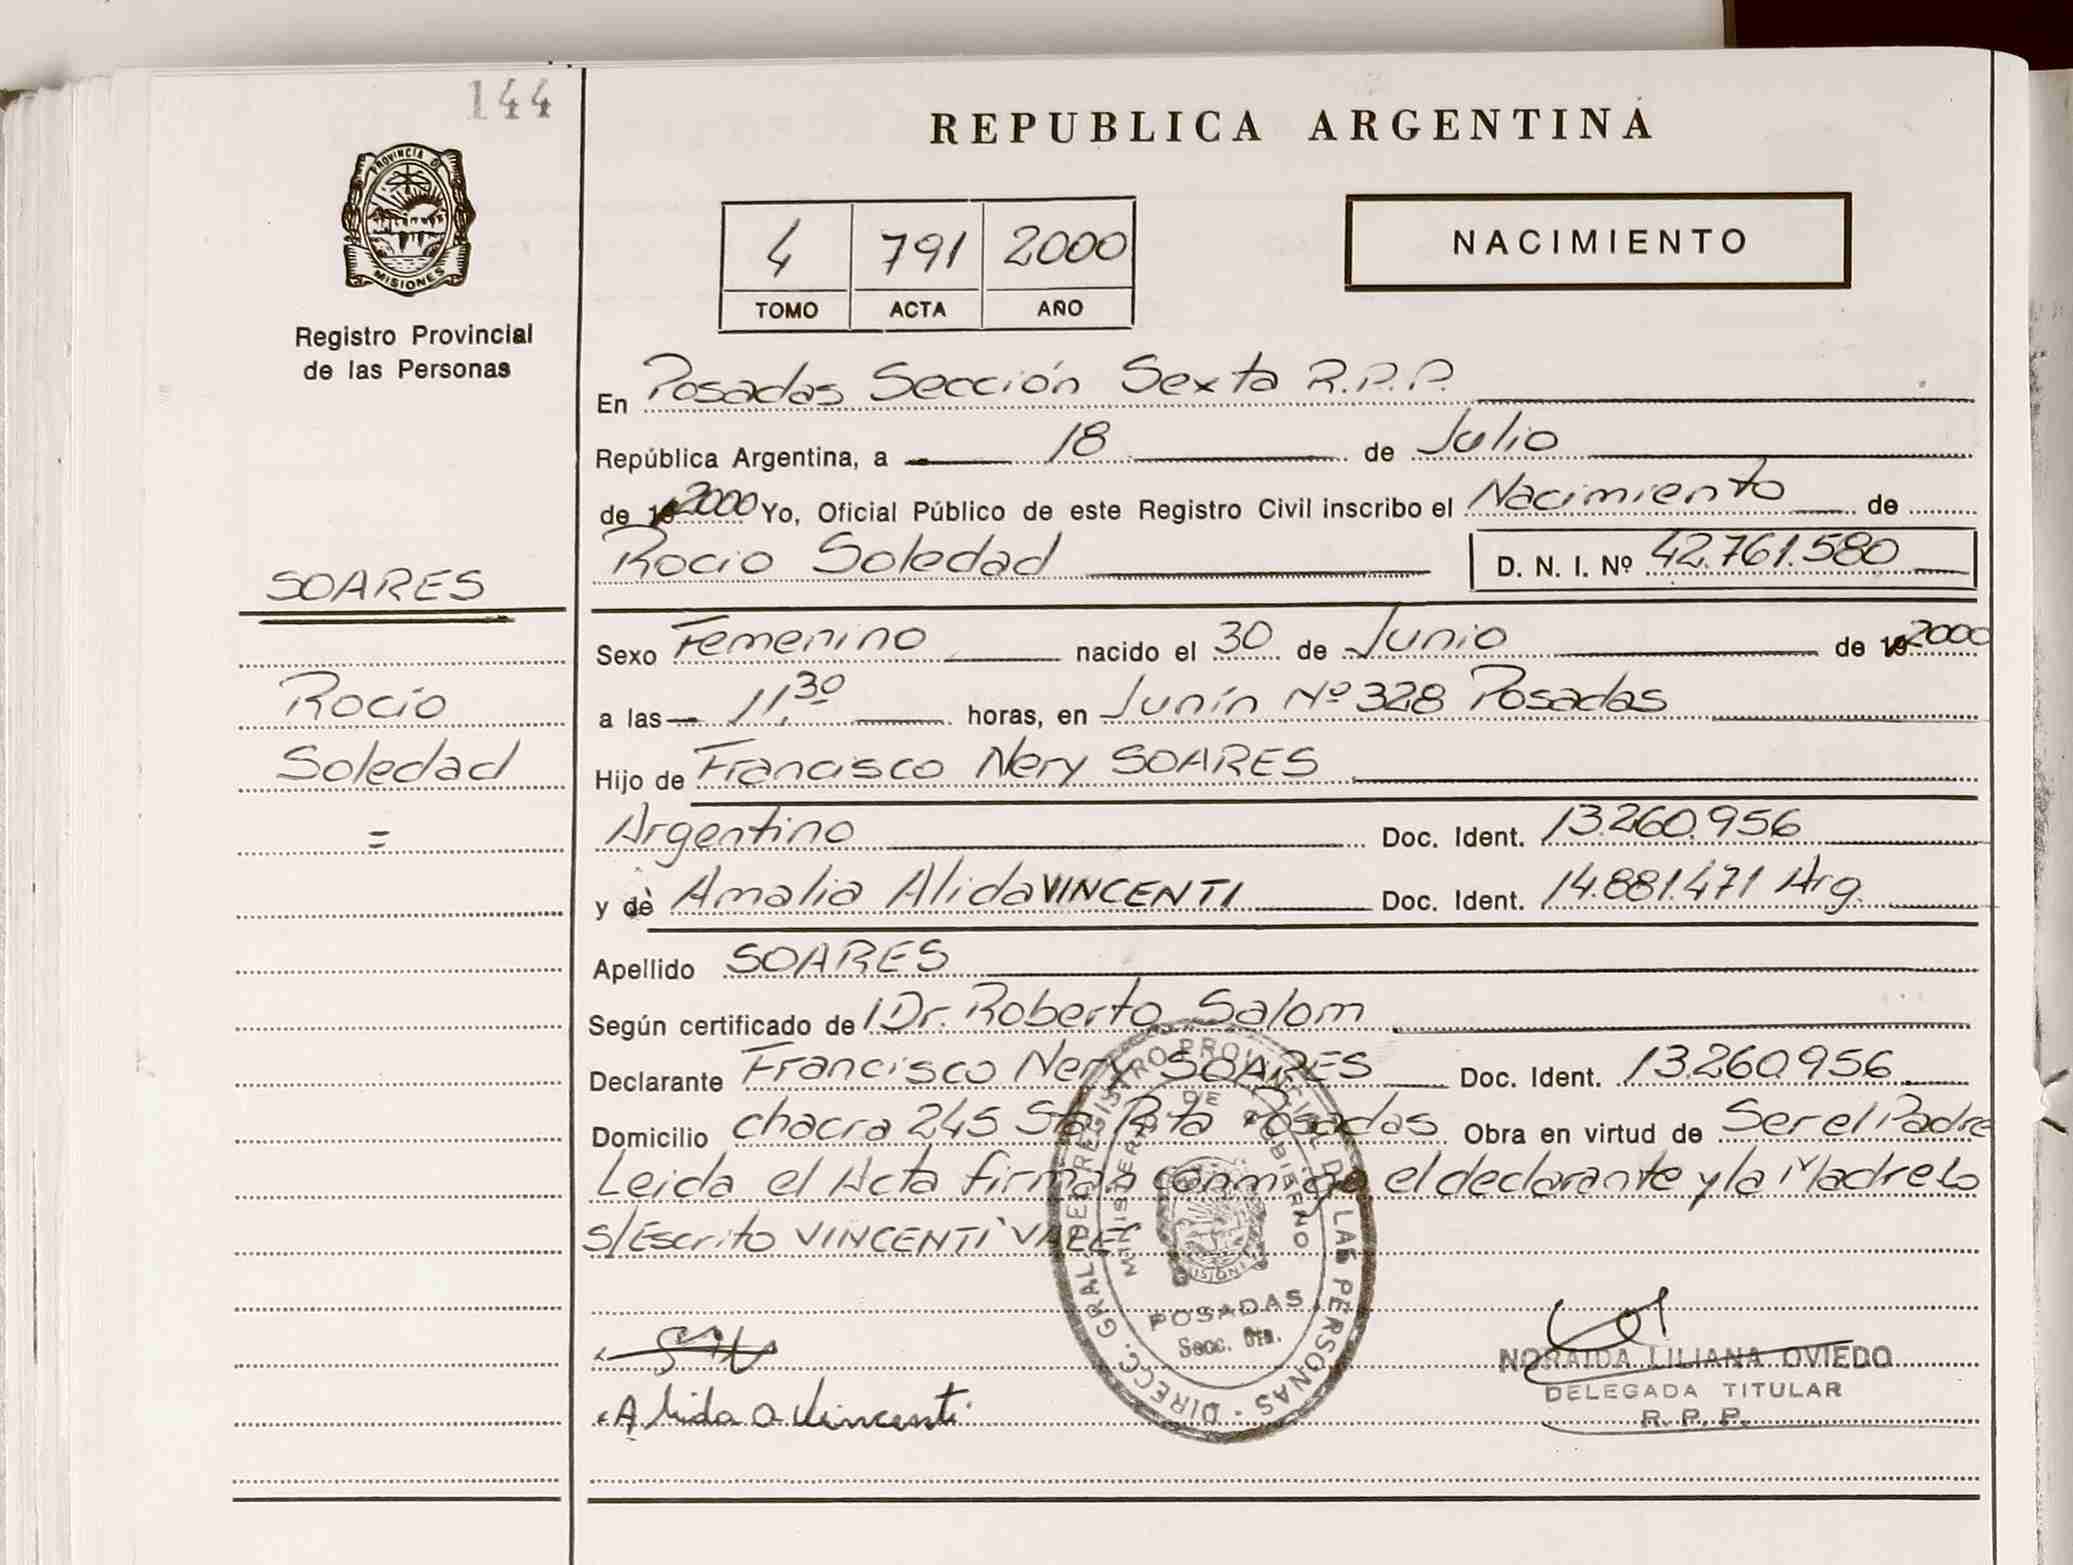 144
REPUBLICA ARGENTINA
PROVINCIA DE
MISIONES
4 791 2000
TOMO ACTA AÑO
NACIMIENTO
Registro Provincial
de las Personas
En Posadas Sección Sexta R.P.P.
República Argentina, a 18 de Julio
de 19 2000 Yo, Oficial Público de este Registro Civil inscribo el Nacimiento de
Rocio Soledad D. N. I. Nº 42.761.580
SOARES
Sexo Femenino nacido el 30 de Junio de 19 2000
Rocío
a las 11,30 horas, en Junín Nº 328 Posadas
Soledad
Hijo de Francisco Nery SOARES
=
Argentino Doc. Ident. 13.260.956
y de Amalia Alida VINCENTI Doc. Ident. 14.881.471 Arg.
Apellido SOARES
Según certificado de Dr. Roberto Salom
Declarante Francisco Nery SOARES Doc. Ident. 13.260.956
Domicilio chacra 245 Sta Rita Posadas Obra en virtud de Ser el Padre
Leida el Acta firman conmigo el declarante y la Madre Lo
s/Escrito VINCENTI VALE
DIRECC. GRAL. DEL REGISTRO PROVINCIAL DE LAS PERSONAS
MINISTERIO DE GOBIERNO
MISIONES
POSADAS
Secc. 6ta.
NORAIDA LILIANA OVIEDO
DELEGADA TITULAR
R. P. P.
Alida a Vincenti